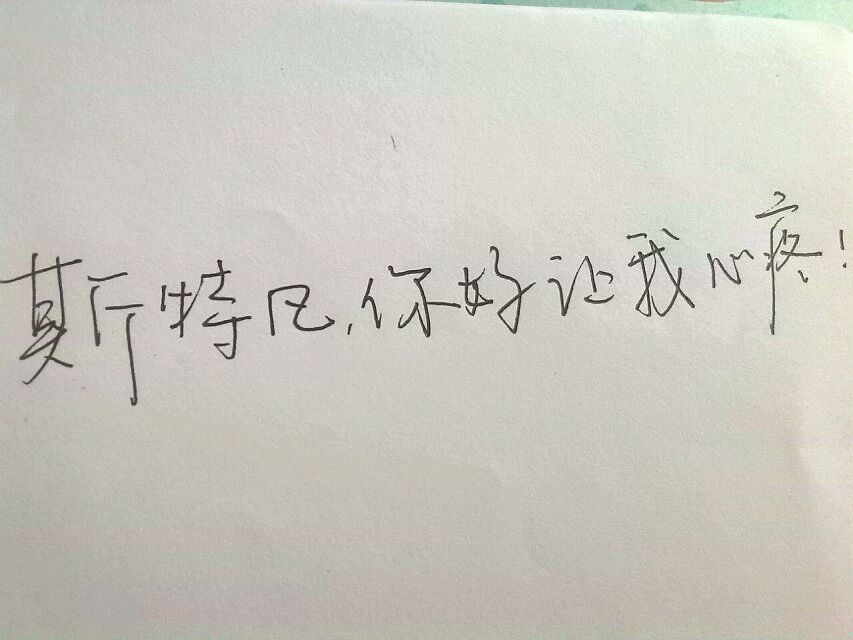 斯特凡,你好让我心疼!